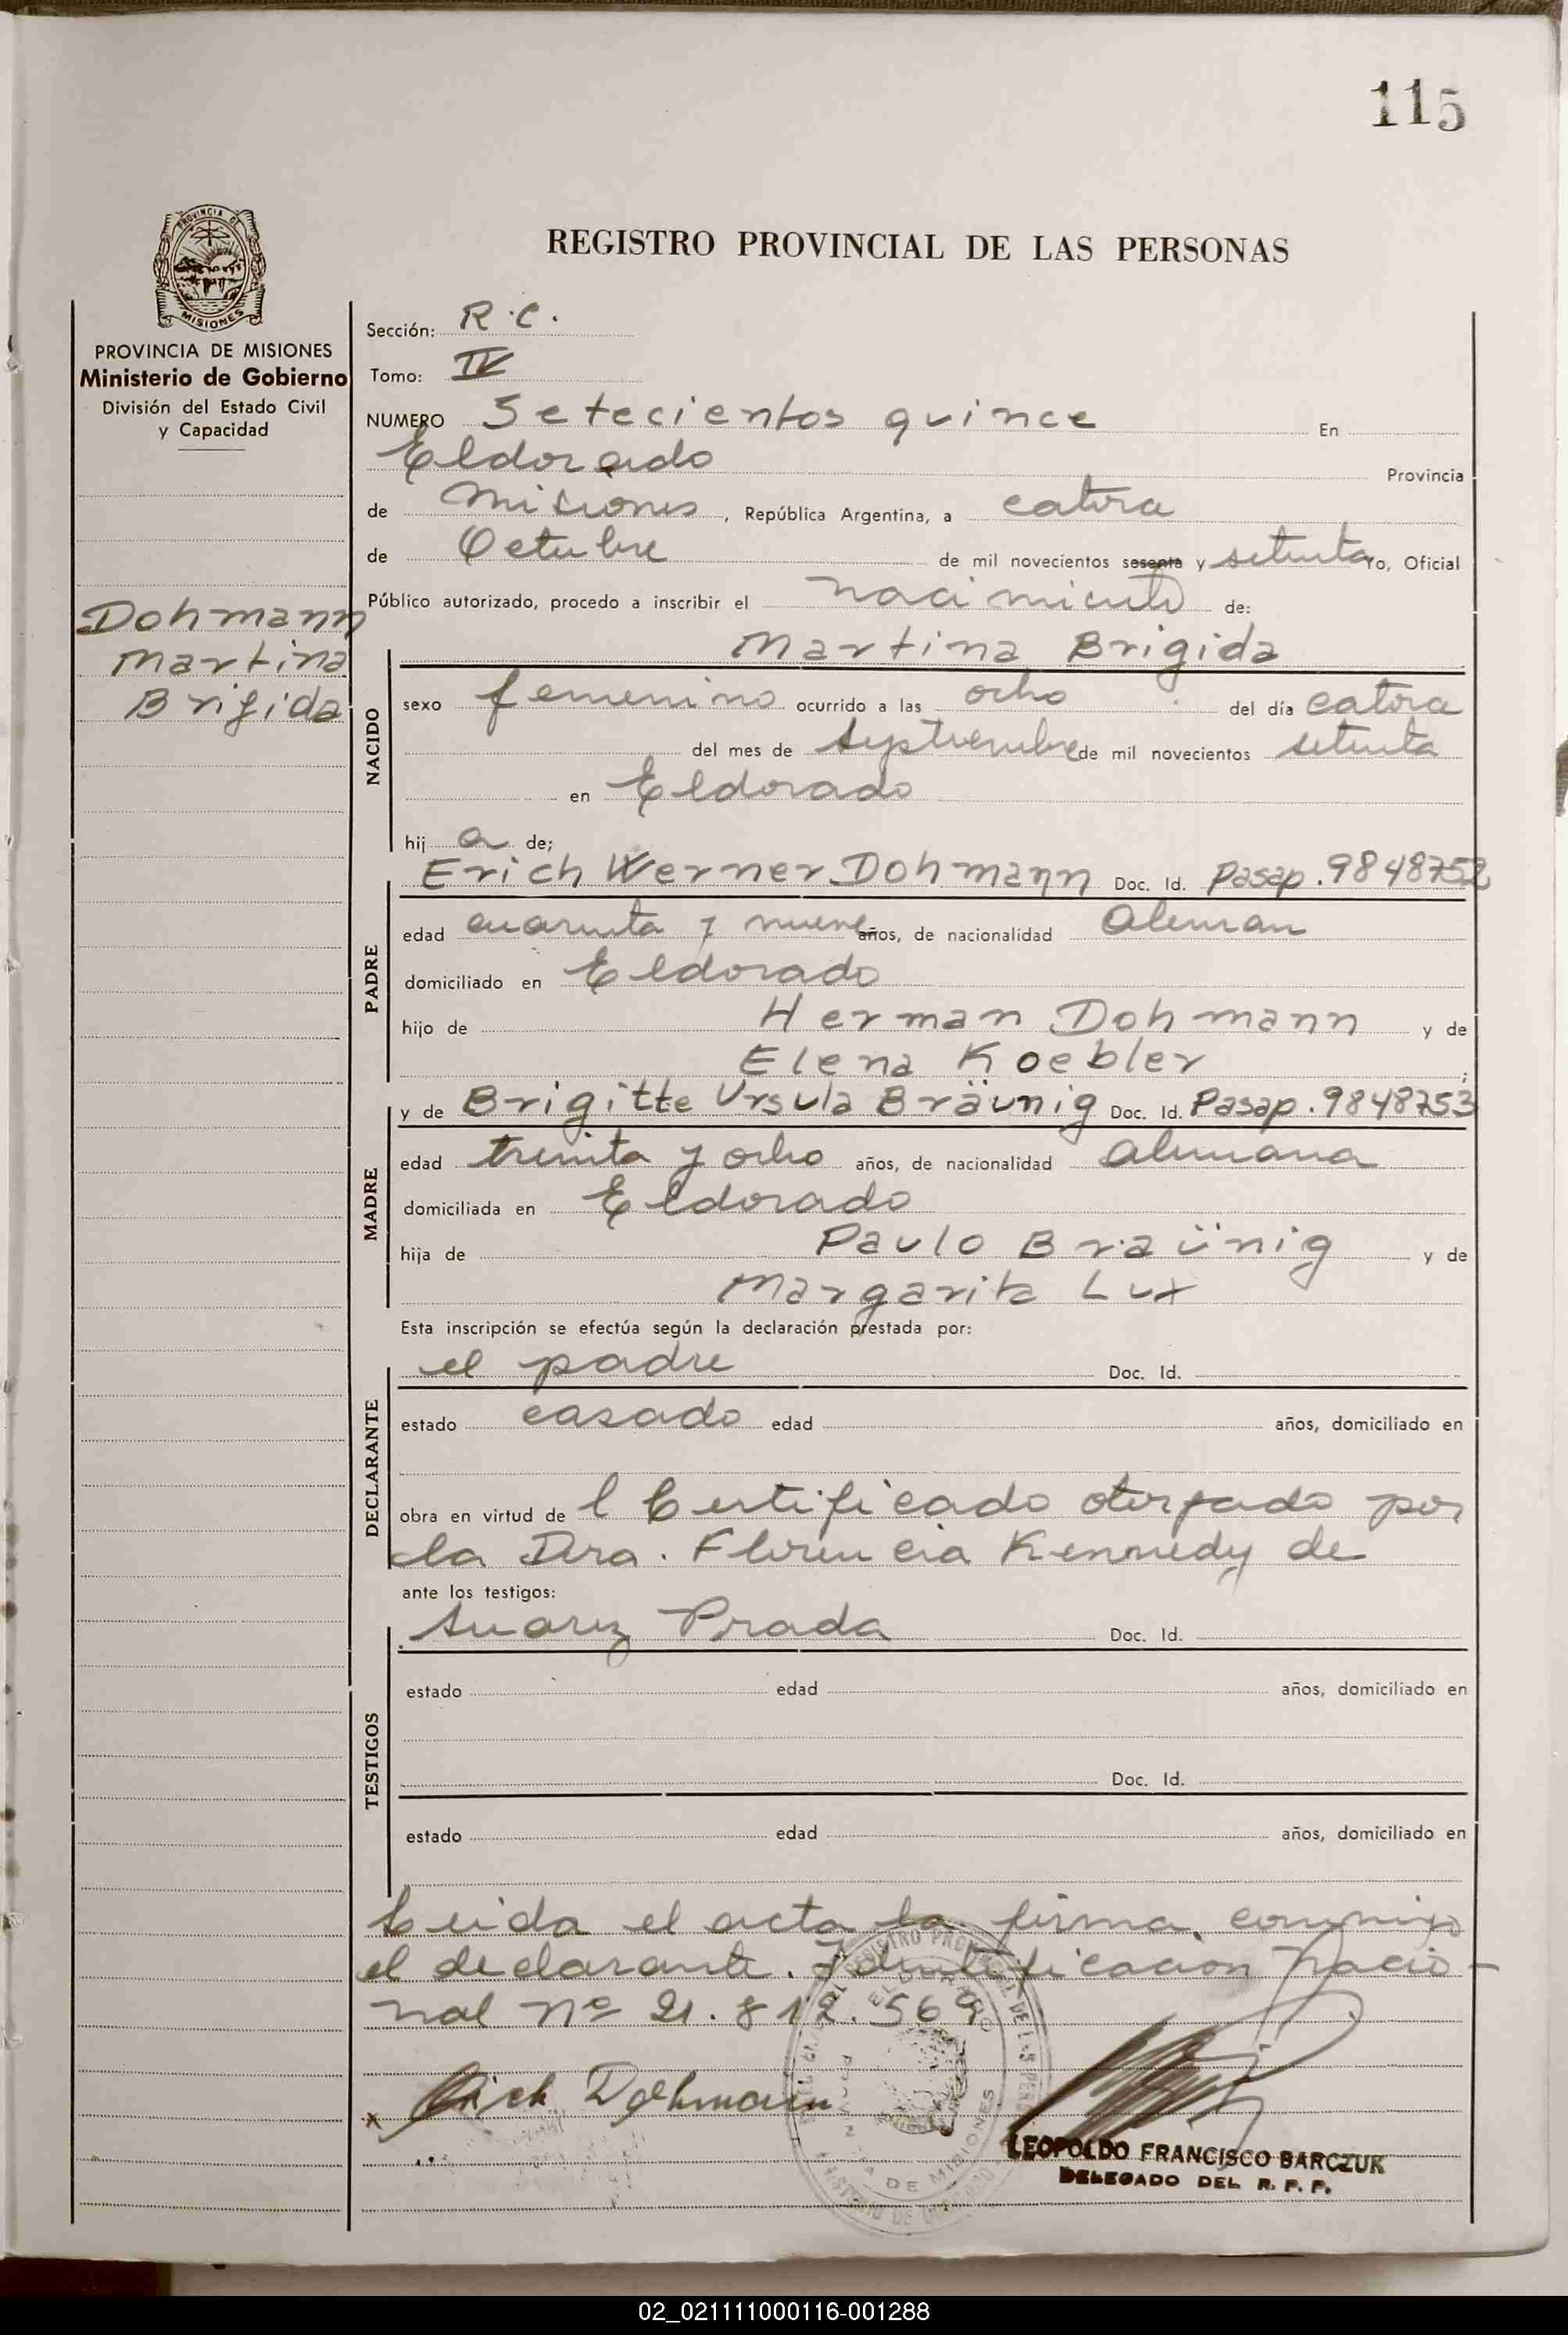 115
REGISTRO PROVINCIAL DE LAS PERSONAS
PROVINCIA DE
MISIONES
PROVINCIA DE MISIONES
Ministerio de Gobierno
División del Estado Civil
y Capacidad
Dohmann
Martina
Brigida
Sección: R.C.
Tomo: IV
NUMERO Setecientos quince En
Eldorado Provincia
de Misiones, República Argentina, a catorce
de Octubre de mil novecientos sesenta y setenta Yo, Oficial
Público autorizado, procedo a inscribir el nacimiento de:
Martina Brigida
NACIDO
sexo femenino ocurrido a las ocho del día catorce
del mes de Septiembre de mil novecientos setenta
en Eldorado
hij a de;
Erich Werner Dohmann Doc. Id. Pasap. 9848752
PADRE
edad cuarenta y nueve años, de nacionalidad Aleman
domiciliado en Eldorado
hijo de Herman Dohmann y de
Elena Koebler ;
y de Brigitte Ursula Bräunig Doc. Id. Pasap. 9848753
MADRE
edad treinta y ocho años, de nacionalidad alemana
domiciliada en Eldorado
hija de Paulo Braünig y de
Margarita Lux
Esta inscripción se efectúa según la declaración prestada por:
el padre Doc. Id.
DECLARANTE
estado casado edad años, domiciliado en
obra en virtud de l Certificado otorgado por
la Dra. Florencia Kennedy de
ante los testigos:
Suarez Prada Doc. Id.
TESTIGOS
estado edad años, domiciliado en
Doc. Id.
estado edad años, domiciliado en
Leida el acta la firma conmigo
el declarante. Identificacion nacio-
nal nº 21.812.569
x Erich Dohmann
ELDORADO
DE MISIONES
LEOPOLDO FRANCISCO BARCZUK
DELEGADO DEL R. P. P.
02_021111000116-001288